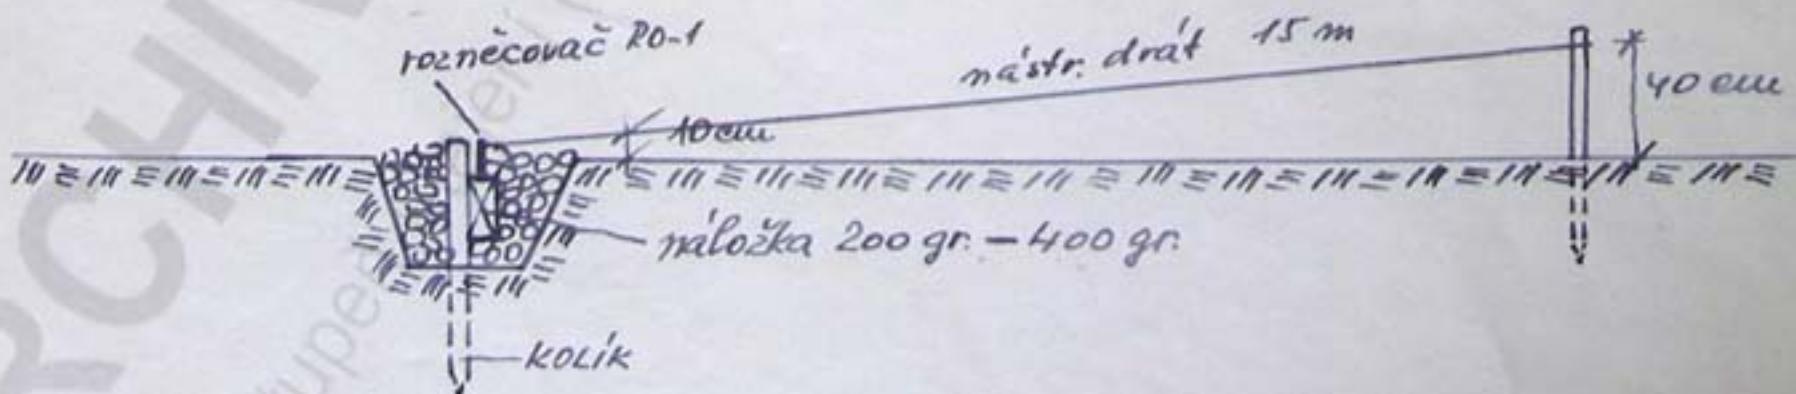 rozněcovač RO-1
nástr. drát 15 m
40 cm
10 cm
náložka 200 gr. – 400 gr.
KOLÍK
RCHIV